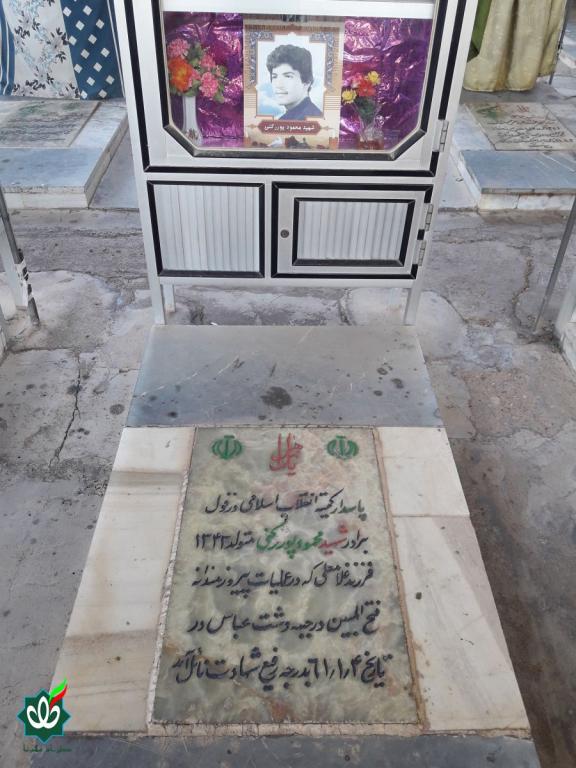 شهید محمود پوررکنی
پاسدار کمیته انقلاب اسلامی دزفول
برادر شهید محمود پوررکنی متولد ۱۳۴۲
فرزند غلامعلی که در عملیات پیروزمندانه
فتح المبین در جبهه دشت عباس در
تاریخ ۶۱/۱/۴ بدرجه رفیع شهادت نائل آمد